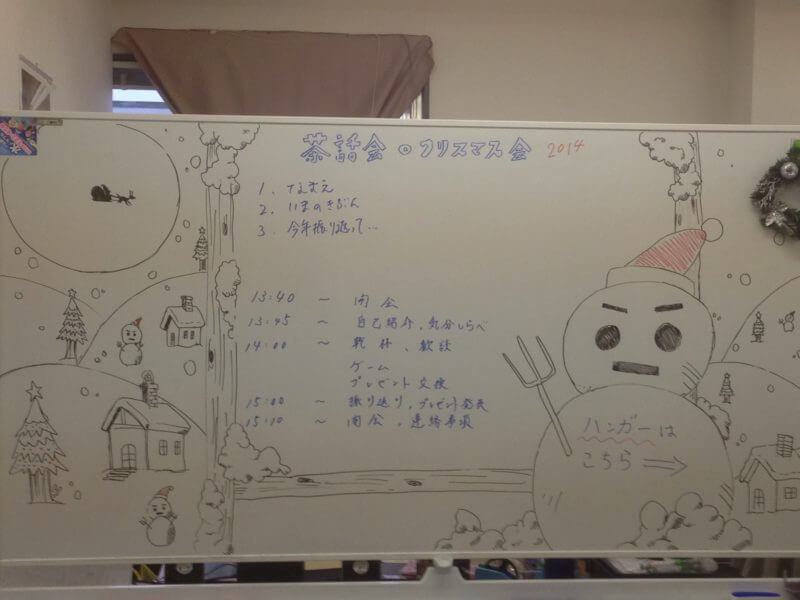 茶話会。クリスマス会 2014
1. なまえ
2. いまのきぶん
3. 今年振り返って…
13:40 ～ 開会
13:45 ～ 自己紹介、気分しらべ
14:00 ～ 乾杯、歓談
ゲーム
プレゼント交換
15:00 ～ 振り返り、プレゼント発表
15:10 ～ 閉会、連絡事項
ハンガーは
こちら ⇒